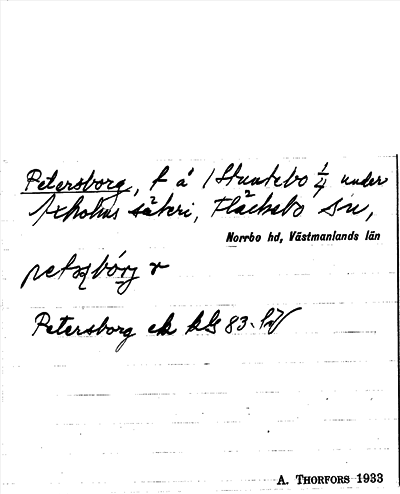 Petersborg, t å 1 Stuntebo 1/4 under
Axholms säteri, Fläckebo sn,
Norrbo hd, Västmanlands län
Petersborg ek kG 83.
A. THORFORS 1933